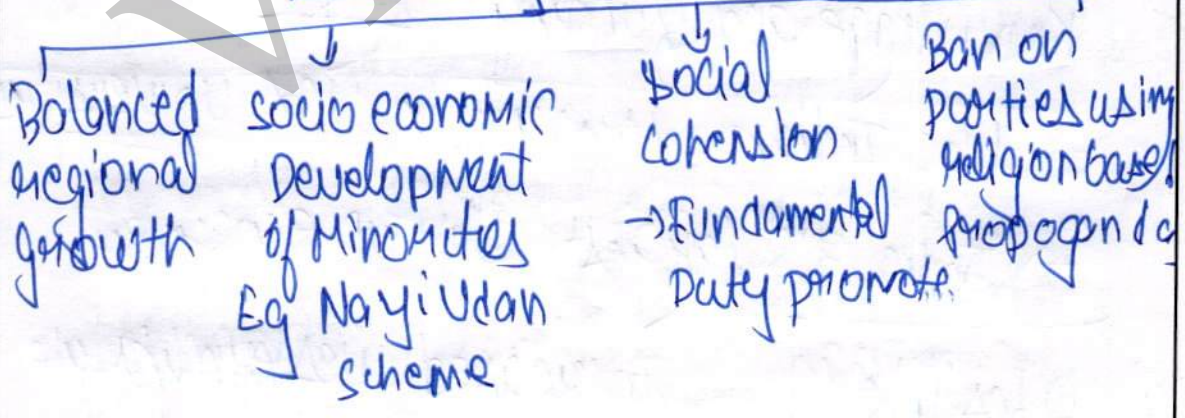 Balanced
regional
growth
socio economic
Development
of Minorities
Eg Nayi Udan
scheme
social
cohension
→Fundamental
Duty promote.
Ban on
parties using
religion based
propoganda